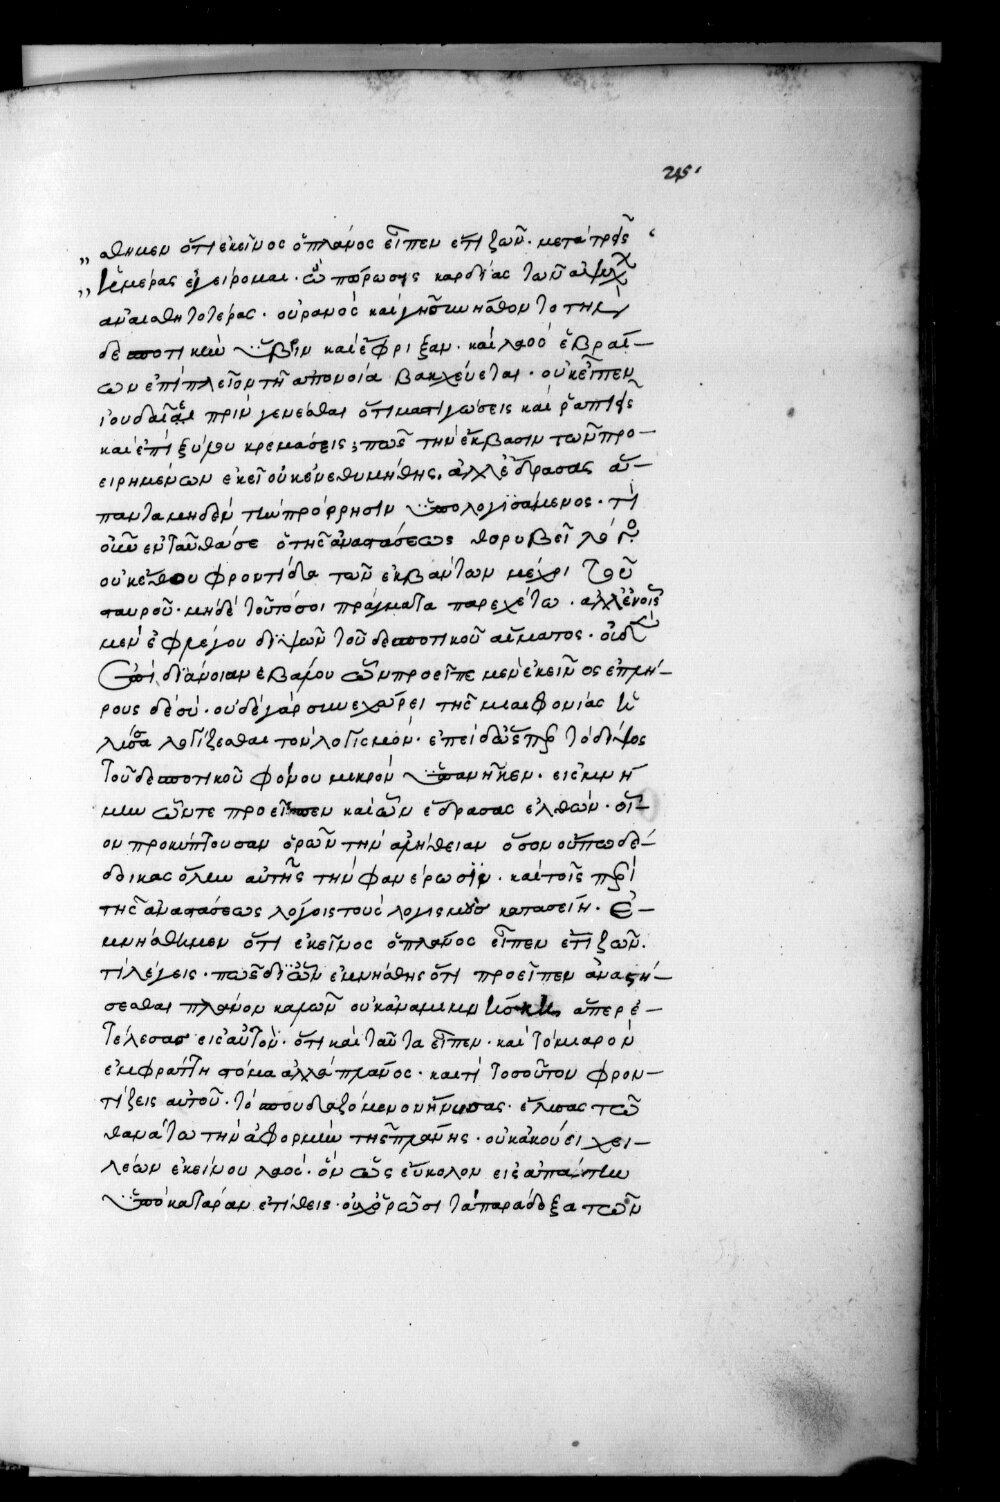 215
σθημεν ὅτι ἐκεῖνος ὁ πλάνος εἶπεν ἔτι ζῶν. μετὰ τρεῖς
ἡμέρας ἐγείρομαι. ὢ πώρωσις καρδίας τῶν ἀψύχων
ἀναισθητοτέρας. οὐρανὸς καὶ γῆ συνήσθοντο τὴν
δεσποτικὴν ὕβριν καὶ ἔφριξαν. καὶ λαὸς ἑβραί-
ων ἐπὶ πλεῖον τῆ ἀπονοία βακχεύεται. οὐκ εἶπεν
ἰουδαῖε πρὶν γενέσθαι ὅτι μαστιγώσεις καὶ ῥαπίσεις
καὶ ἐπὶ ξύλου κρεμάσεις; πῶς τὴν ἔκβασιν τῶν προ-
ειρημένων ἐκεῖ οὐκ ἐνεθυμήθης. ἀλλ' ἔδρασας ἅ-
παντα μηδὲν τὴν πρόρρησιν ὑπολογισάμενος. τί
οὖν ἐνταῦθα σε ὁ τῆς ἀναστάσεως θορυβεῖ λόγος
οὐκ ἔστι σου φροντίδα τῶν ἐκβάντων μέχρι τοῦ
σταυροῦ. μηδὲ τοῦτό σοι πράγματα παρεχέτω. ἀλλ' ἐν οἷς
μὲν ἐφλέγου διψῶν τοῦ δεσποτικοῦ αἵματος. οὐδὲ
ἐπὶ διάνοιαν ἐβάλου ὧν προεῖπε μὲν ἐκεῖνος ἐπλή-
ρους δὲ σύ. οὐδὲ γὰρ συνεχώρει τῆς μιαιφονίας ἡ
λύσσα λογίζεσθαι τὸν λογισμόν. ἐπεὶ δ' ὥσπερ τὸ δίψος
τοῦ δεσποτικοῦ φόνου μικρὸν ὑπανῆκεν. εἰς μνή-
μην ὧν τε προεῖπεν καὶ ὧν ἔδρασας ἐλθών. οἷ-
ον προκύπτουσαν ὁρῶν τὴν ἀλήθειαν ὅσον οὔπω δέ-
δοικας ὅλην αὐτῆς τὴν φανέρωσιν. καὶ τοῖς περὶ
τῆς ἀναστάσεως λόγοις τοὺς λογισμοὺς κατασείη. Ἐ-
μνήσθημεν ὅτι ἐκεῖνος ὁ πλάνος εἶπεν ἔτι ζῶν.
τί λέγεις. πῶς δι' ὧν ἐμνήσθης ὅτι προεῖπεν ἀναστή-
σεσθαι πλάνον καλῶν οὐκ ἀναμιμνήσκη ἅπερ ἐ-
τέλεσας εἰς αὐτόν. ὅτι καὶ ταῦτα εἶπεν. καὶ τὸ μιαρὸν
ἐμφράττη στόμα ἀλλὰ πλάνος. καὶ τί τοσοῦτον φρον-
τίζεις αὐτοῦ. τὸ σπουδαζόμενον ἤνυσας. ἔλυσας τῶ
θανάτω τὴν ἀφορμὴν τῆς πλάνης. οὐκ ἀκούει χει-
λέων ἐκείνου λαός. ὃν ὡς εὔκολον εἰς ἀπάτην
ὑπὸ κατάραν ἐτίθεις. οὐχ ὁρῶσι τὰ παράδοξα τῶν